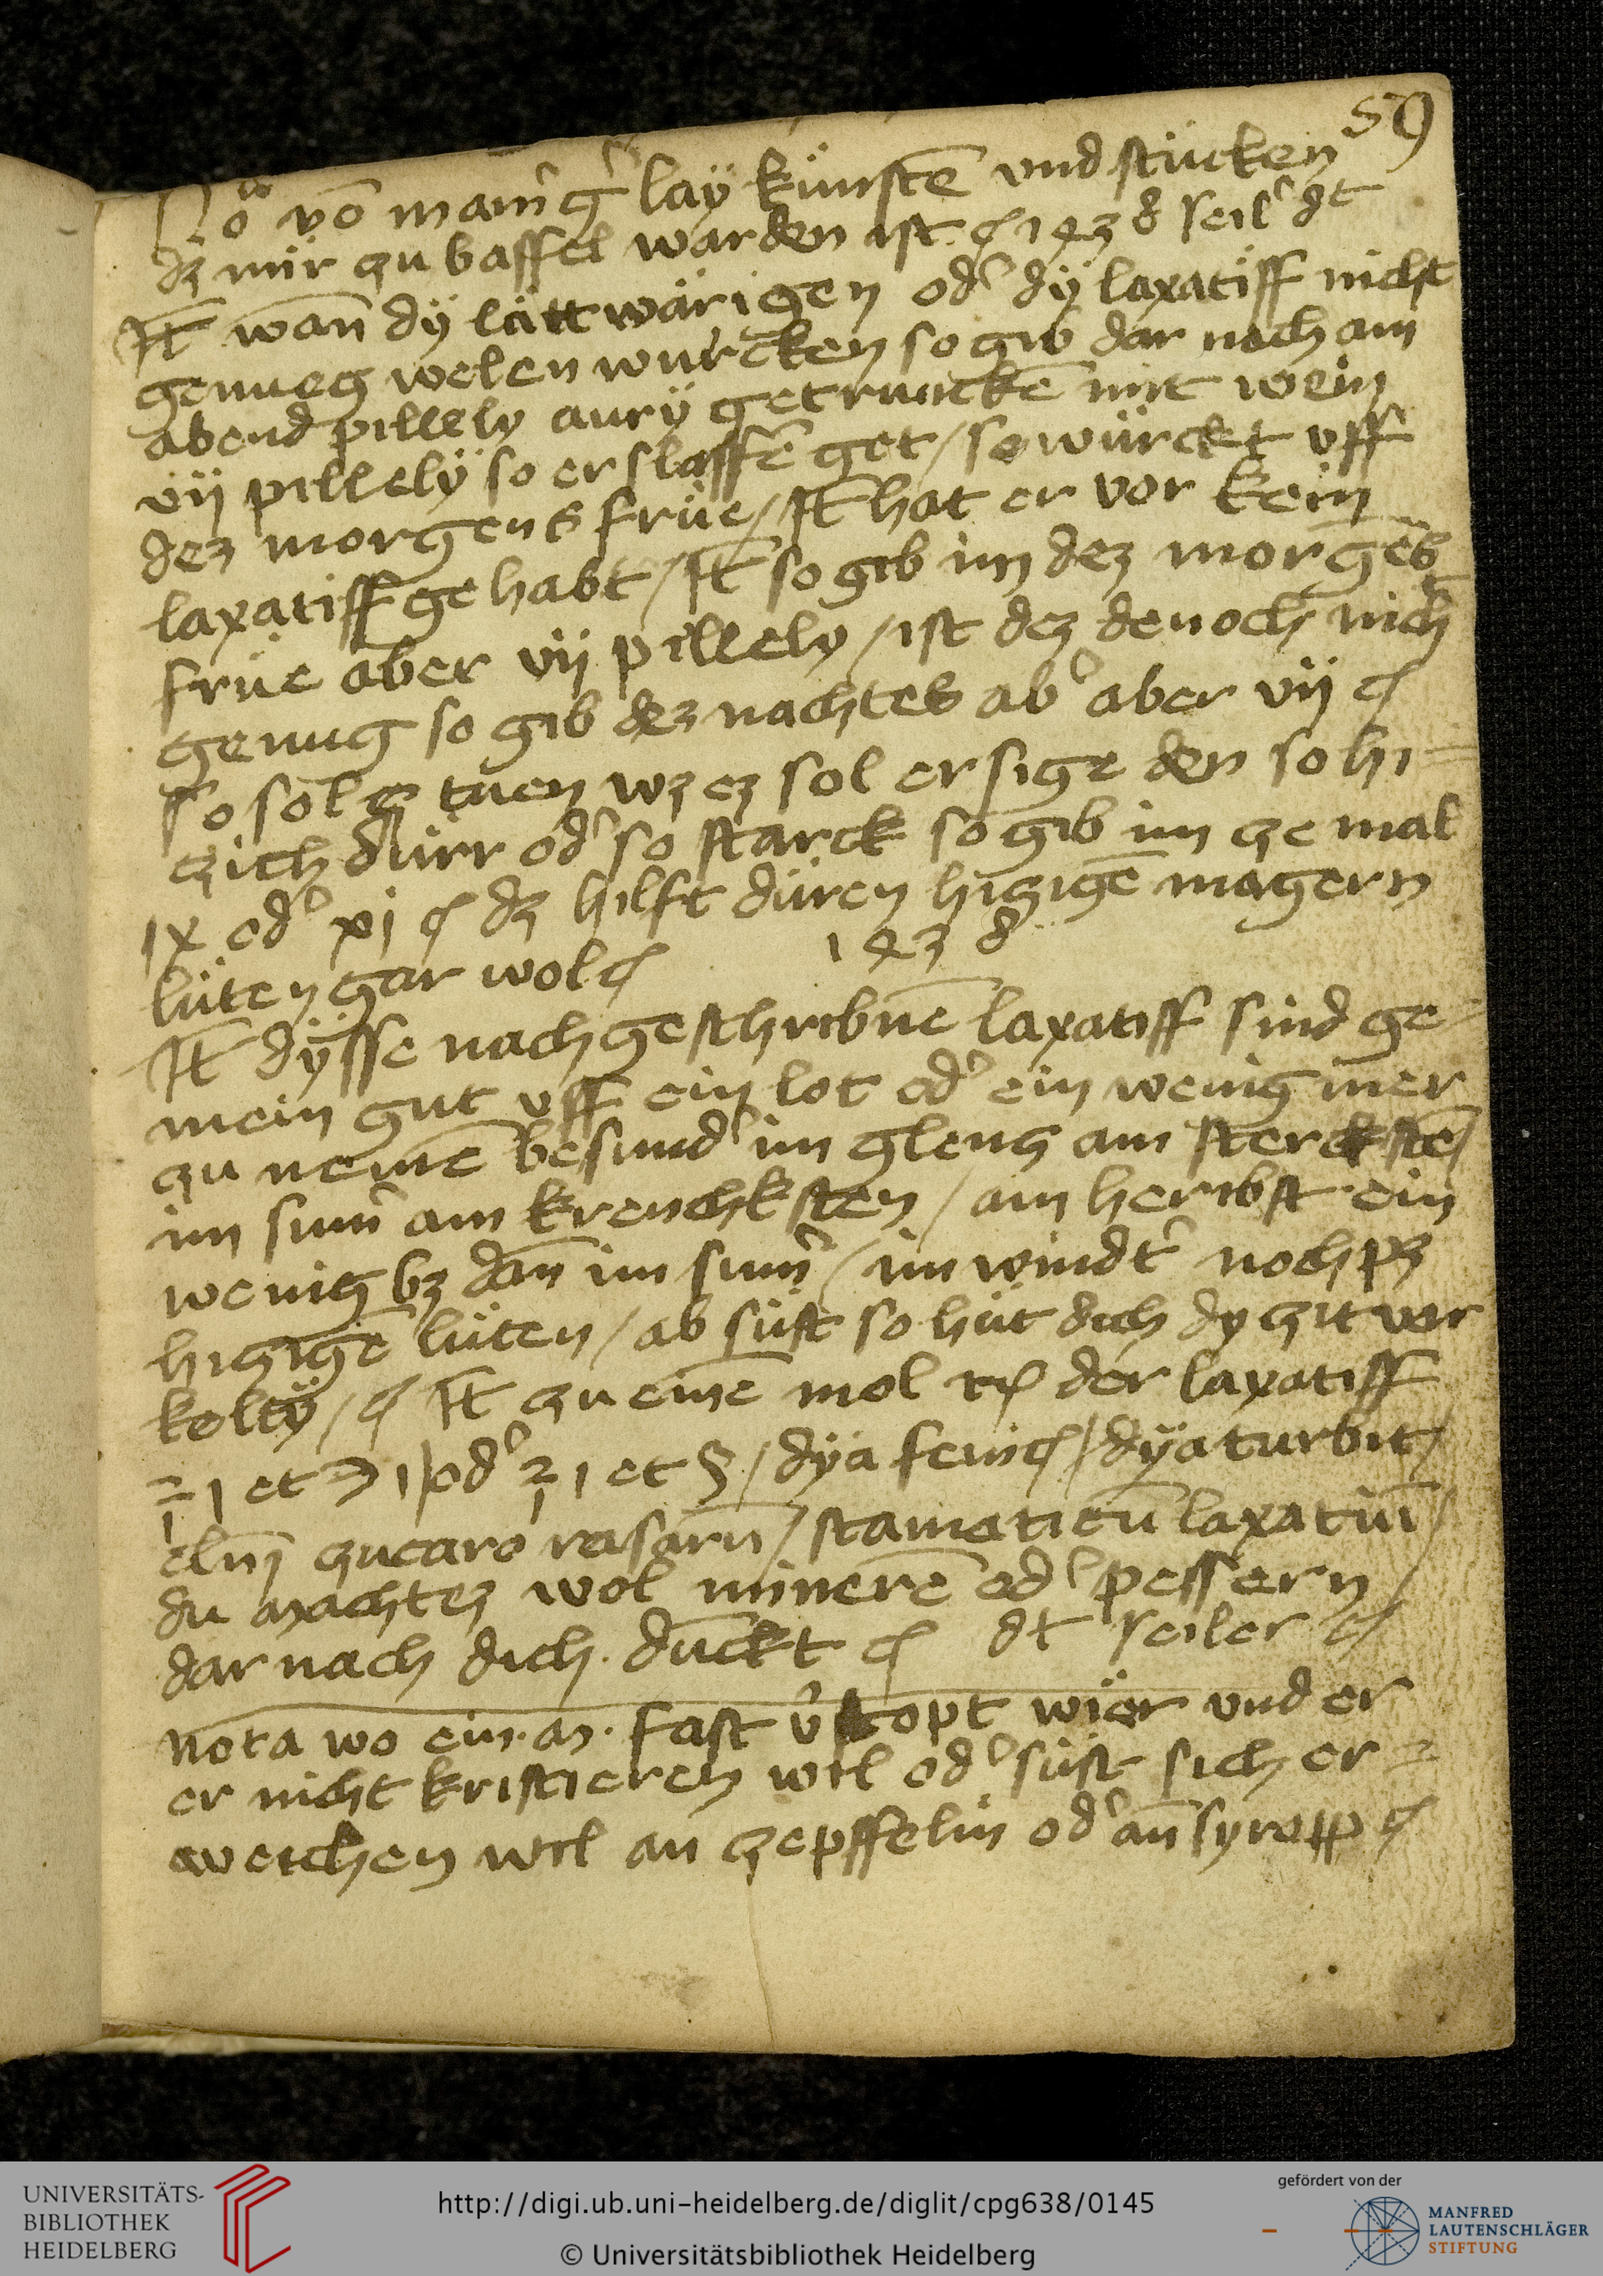 59
Nů vō manig̾ laÿ künstē vnd stücken
dz mir zu bassel warden ist 1438 seil̾ dt
It̄ wan̄ dÿ lättwärigen od̾ dÿ laxatiff nicht
genueg welen wurcken so gib dar nach am
abend pillely aurÿ getrunckē mit wein
vij pillelÿ so er slaffē get / so würcket vff
dez morgens früe / It̄ hat er vor kein
laxatiff gehabt / It̄ so gib im dez morgēs
früe aber vij pillely / ist dez denoch nicht
genug so gib dez nachtes ab̾ aber vij
so sol ez tuen wz ez sol er sige den so hi=
zich dürr od̾ so starck so gib im ze mal
ix od̾ xj dz hilft düren hizigē magern
lüten gar wol 1438
It̄ dÿsse nachgeschribnē laxatiff sind ge=
mein gut vff ein lot od̾ ein wenig mer
zu nemē besund̾ im glenz am sterckstē /
im sum̾ am krenchksten / am heribst ein
wenig bz dan̄ im sum̾ / im windt̾ noch pz
hizigē lüten / ab süst so hüt dich dy zit vor
keltÿ / It̄ zu einē mol der laxatiff
1 et 1 / od̾ 1 et / dÿa fenic / dÿaturbit /
zucaro rasarū / stamaticū laxatiuū /
du machtez wol minerē od̾ pessern /
dar nach dich dunckt dt seiler
nota wo ein .m. fast v̾stopt wier vnd er
er nicht kristieren wil od̾ süst sich er=
weichen wil an zepffelin od̾ an̄ syropp
UNIVERSITÄTS-
BIBLIOTHEK
HEIDELBERG
http://digi.ub.uni-heidelberg.de/diglit/cpg638/0145
© Universitätsbibliothek Heidelberg
gefördert von der
MANFRED
LAUTENSCHLÄGER
STIFTUNG